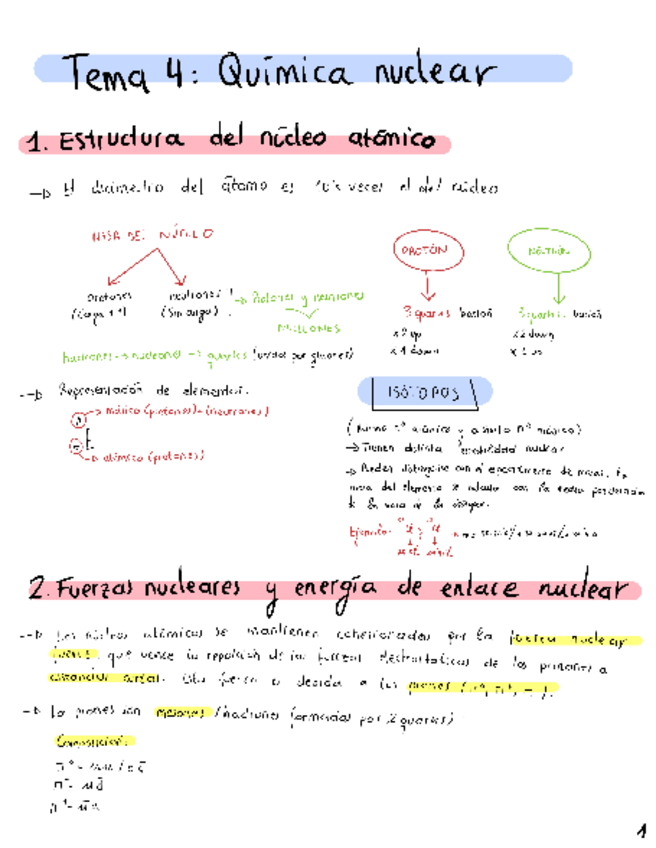 Tema 4: Química nuclear
1. Estructura del núcleo atómico
El diámetro del átomo es veces el del núcleo
MASA DEL NÚCLEO
protones
neutrones
(Carga +1)
(Sin carga)
Protones y neutrones
NUCLEONES
(unidos por gluones)
PROTÓN
3 quarks barión
x 2 up
x 1 down
NEUTRÓN
3 quarks barión
x 2 down
x 1 up
Representación de elementos:
másico (protones)+(neutrones)
atómico (protones)
ISÓTOPOS
(mismo nº atómico y distinto nº másico)
Tienen distinta estabilidad nuclear
Pueden distinguirse con el espectrómetro de masas. La
masa del elemento se calcula con la media ponderada
de la masa de los isótopos.
Ejemplo:
2. Fuerzas nucleares y energía de enlace nuclear
Los núcleos atómicos se mantienen cohesionados por la fuerza nuclear
fuerte que vence la repulsión de las fuerzas electrostáticas de los protones a
distancias cortas. Esta fuerza es debida a los piones
Los piones son mesones / hadrones formados por 2 quarks)
Composición:
1